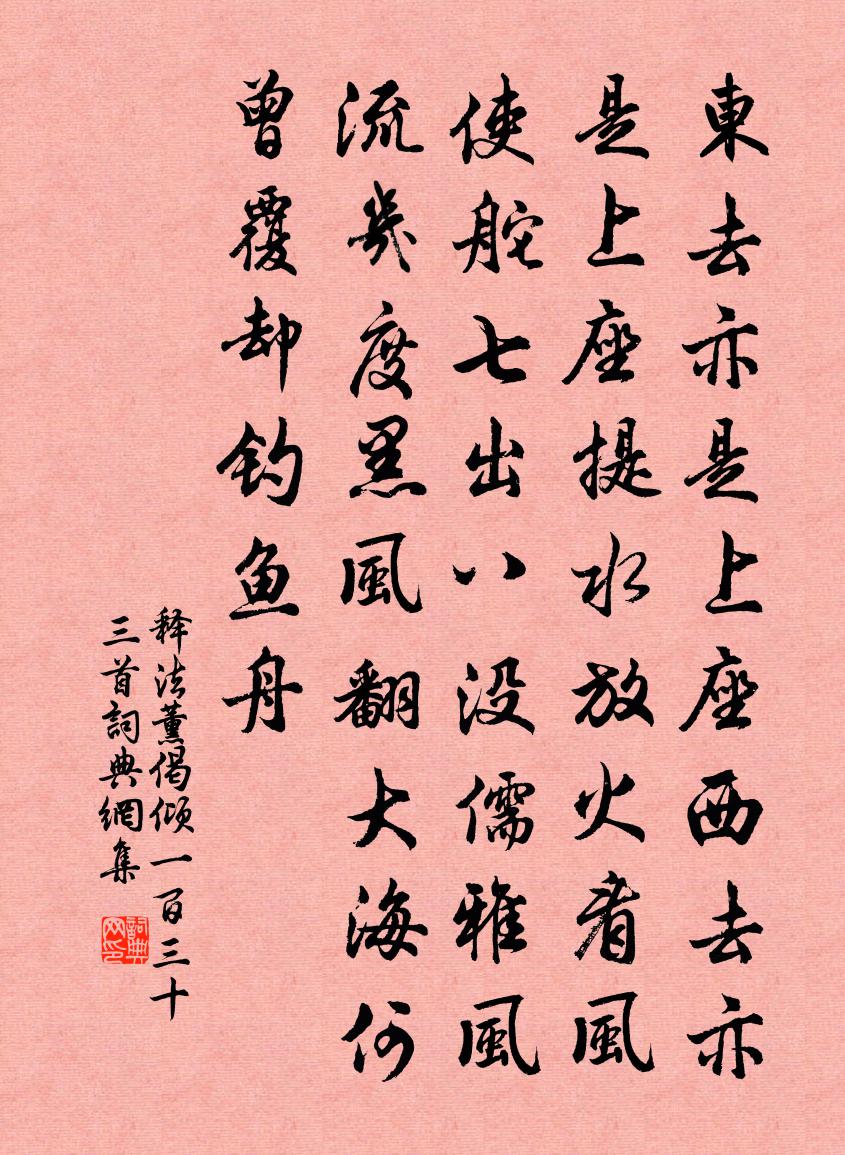 東去亦是上座西去亦
是上座提水放火看風
使舵七出八没儒雅風
流幾度黑風翻大海何
曾覆却钓鱼舟
释法薰偈倾一百三十
三首詞典網集
詞典网印